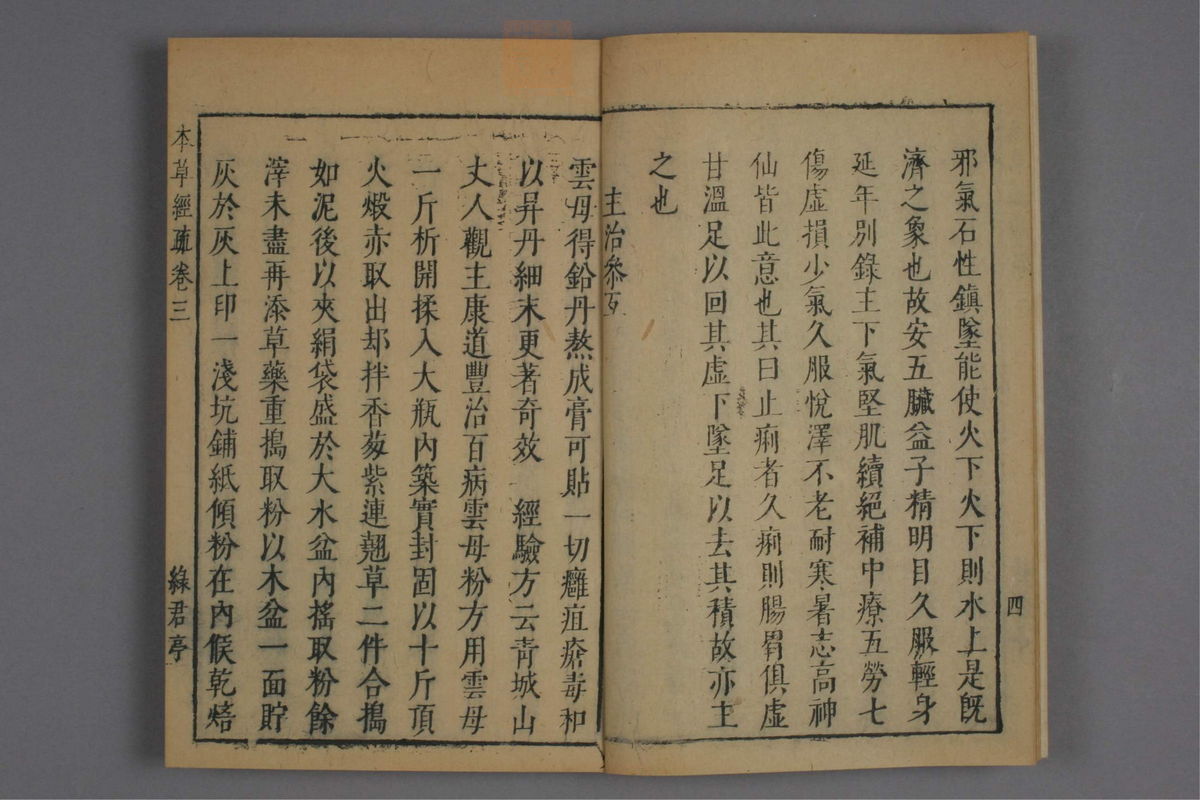 邪氣石性鎮墜能使火下火下則水上是既
濟之象也故安五臟益子精明目久服輕身
延年別錄主下氣堅肌續絕補中療五勞七
傷虛損少氣久服悅澤不老耐寒暑志高神
仙皆此意也其曰止痢者久痢則腸胃俱虛
甘溫足以回其虛下墜足以去其積故亦主
之也
主治參互
四
雲母得鉛丹熬成膏可貼一切癰疽瘡毒和
以昇丹細末更著奇效　經驗方云青城山
丈人觀主康道豐治百病雲母粉方用雲母
一斤析開揉入大瓶內築實封固以十斤頂
火煅赤取出却拌香葱紫連翹草二件合搗
如泥後以夾絹袋盛於大水盆內搖取粉餘
滓未盡再添草藥重搗取粉以木盆一面貯
灰於灰上印一淺坑鋪紙傾粉在內候乾焙
本草經疏卷三
綠君亭